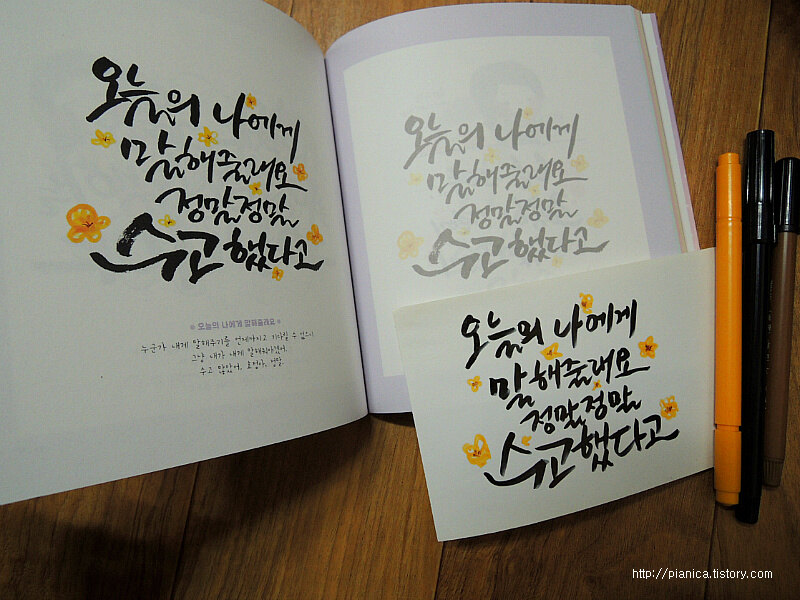 오늘의 나에게
말해줄래요
정말정말
수고했다고
오늘의 나에게 말해줄래요
누군가 내게 말해주기를 언제까지고 기다릴 수 없으니
그냥 내가 내게 말해줘야겠어.
수고 많았어, 정말.
오늘의 나에게
말해줄래요
정말정말
수고했다고
오늘의 나에게
말해줄래요
정말정말
수고했다고
http://pianica.tistory.com